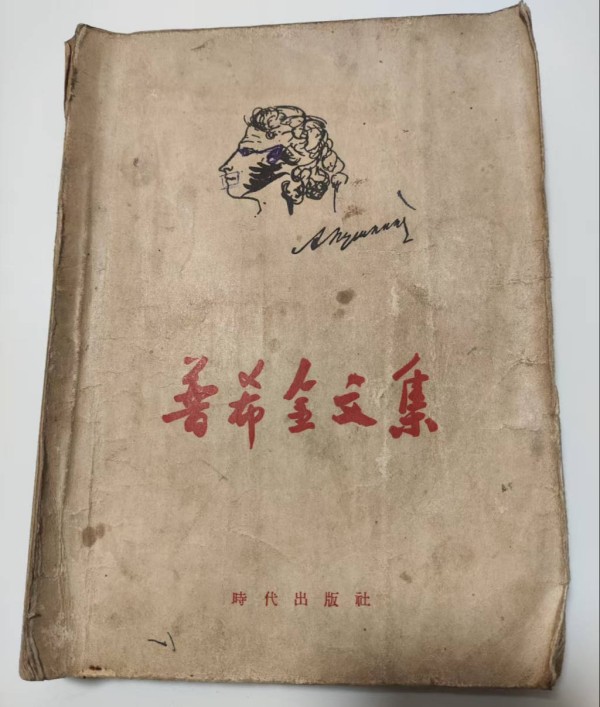 А Пушкинъ
普希金文集
時代出版社